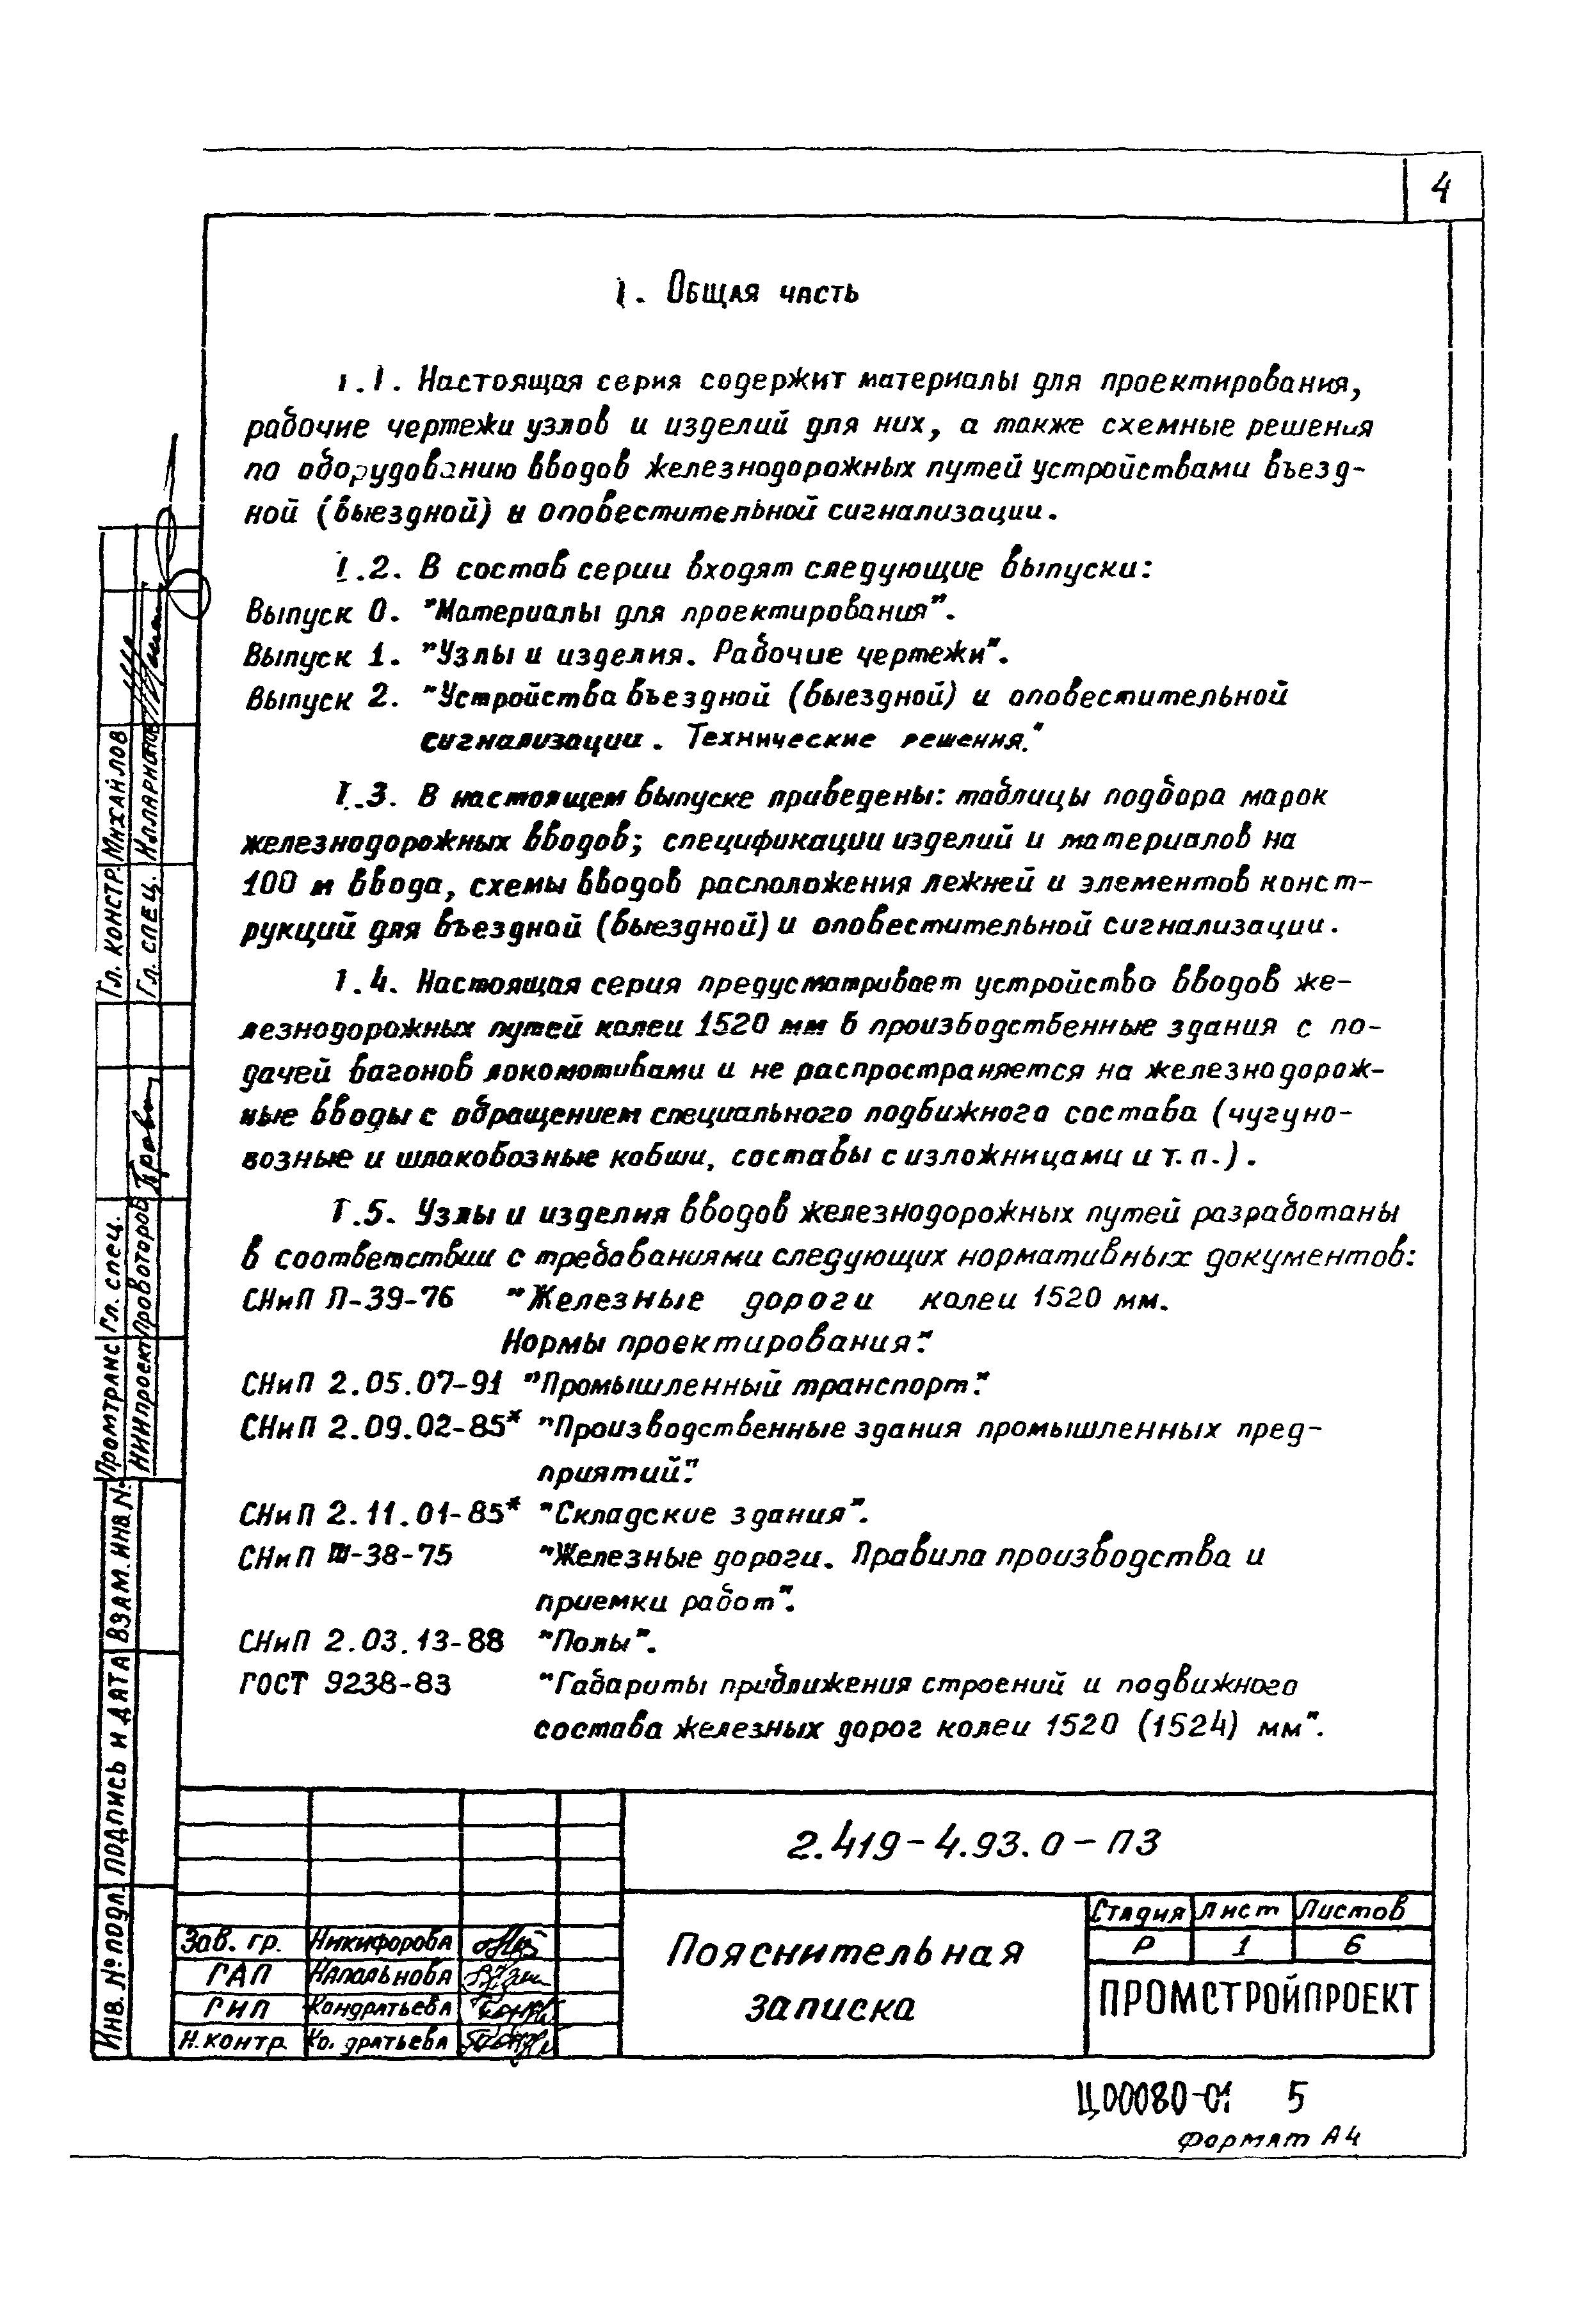 4
1. Общая часть
1.1. Настоящая серия содержит материалы для проектирования,
рабочие чертежи узлов и изделий для них, а также схемные решения
по оборудованию вводов железнодорожных путей устройствами въезд-
ной (выездной) и оповестительной сигнализации.
1.2. В состав серии входят следующие выпуски:
Выпуск 0. "Материалы для проектирования".
Выпуск 1. "Узлы и изделия. Рабочие чертежи".
Выпуск 2. "Устройства въездной (выездной) и оповестительной
сигнализации. Технические решения."
1.3. В настоящем выпуске приведены: таблицы подбора марок
железнодорожных вводов; спецификации изделий и материалов на
100 м ввода, схемы вводов расположения лежней и элементов конст-
рукций для въездной (выездной) и оповестительной сигнализации.
1.4. Настоящая серия предусматривает устройство вводов же-
лезнодорожных путей колеи 1520 мм в производственные здания с по-
дачей вагонов локомотивами и не распространяется на железнодорож-
ные вводы с обращением специального подвижного состава (чугуно-
возные и шлаковозные ковши, составы с изложницами и т.п.).
1.5. Узлы и изделия вводов железнодорожных путей разработаны
в соответствии с требованиями следующих нормативных документов:
СНиП П-39-76 "Железные дороги колеи 1520 мм.
Нормы проектирования".
СНиП 2.05.07-91 "Промышленный транспорт".
СНиП 2.09.02-85* "Производственные здания промышленных пред-
приятий".
СНиП 2.11.01-85* "Складские здания".
СНиП Ш-38-75 "Железные дороги. Правила производства и
приемки работ".
СНиП 2.03.13-88 "Полы".
ГОСТ 9238-83 "Габариты приближения строений и подвижного
состава железных дорог колеи 1520 (1524) мм".
Гл. констр. Михайлов
Гл. спец.
Промтранс Гл. спец.
НИИпроект Провоторов
Взам. инв №
Подпись и дата
Инв. № подл.
2.419-4.93.0-ПЗ
Пояснительная
записка
Стадия Лист Листов
Р 1 6
ПРОМСТРОЙПРОЕКТ
Зав. гр. Никифорова
ГАП Напальнова
ГИП Кондратьева
Н. контр. Ко. дратьева
Ц00080-01 5
Формат А4